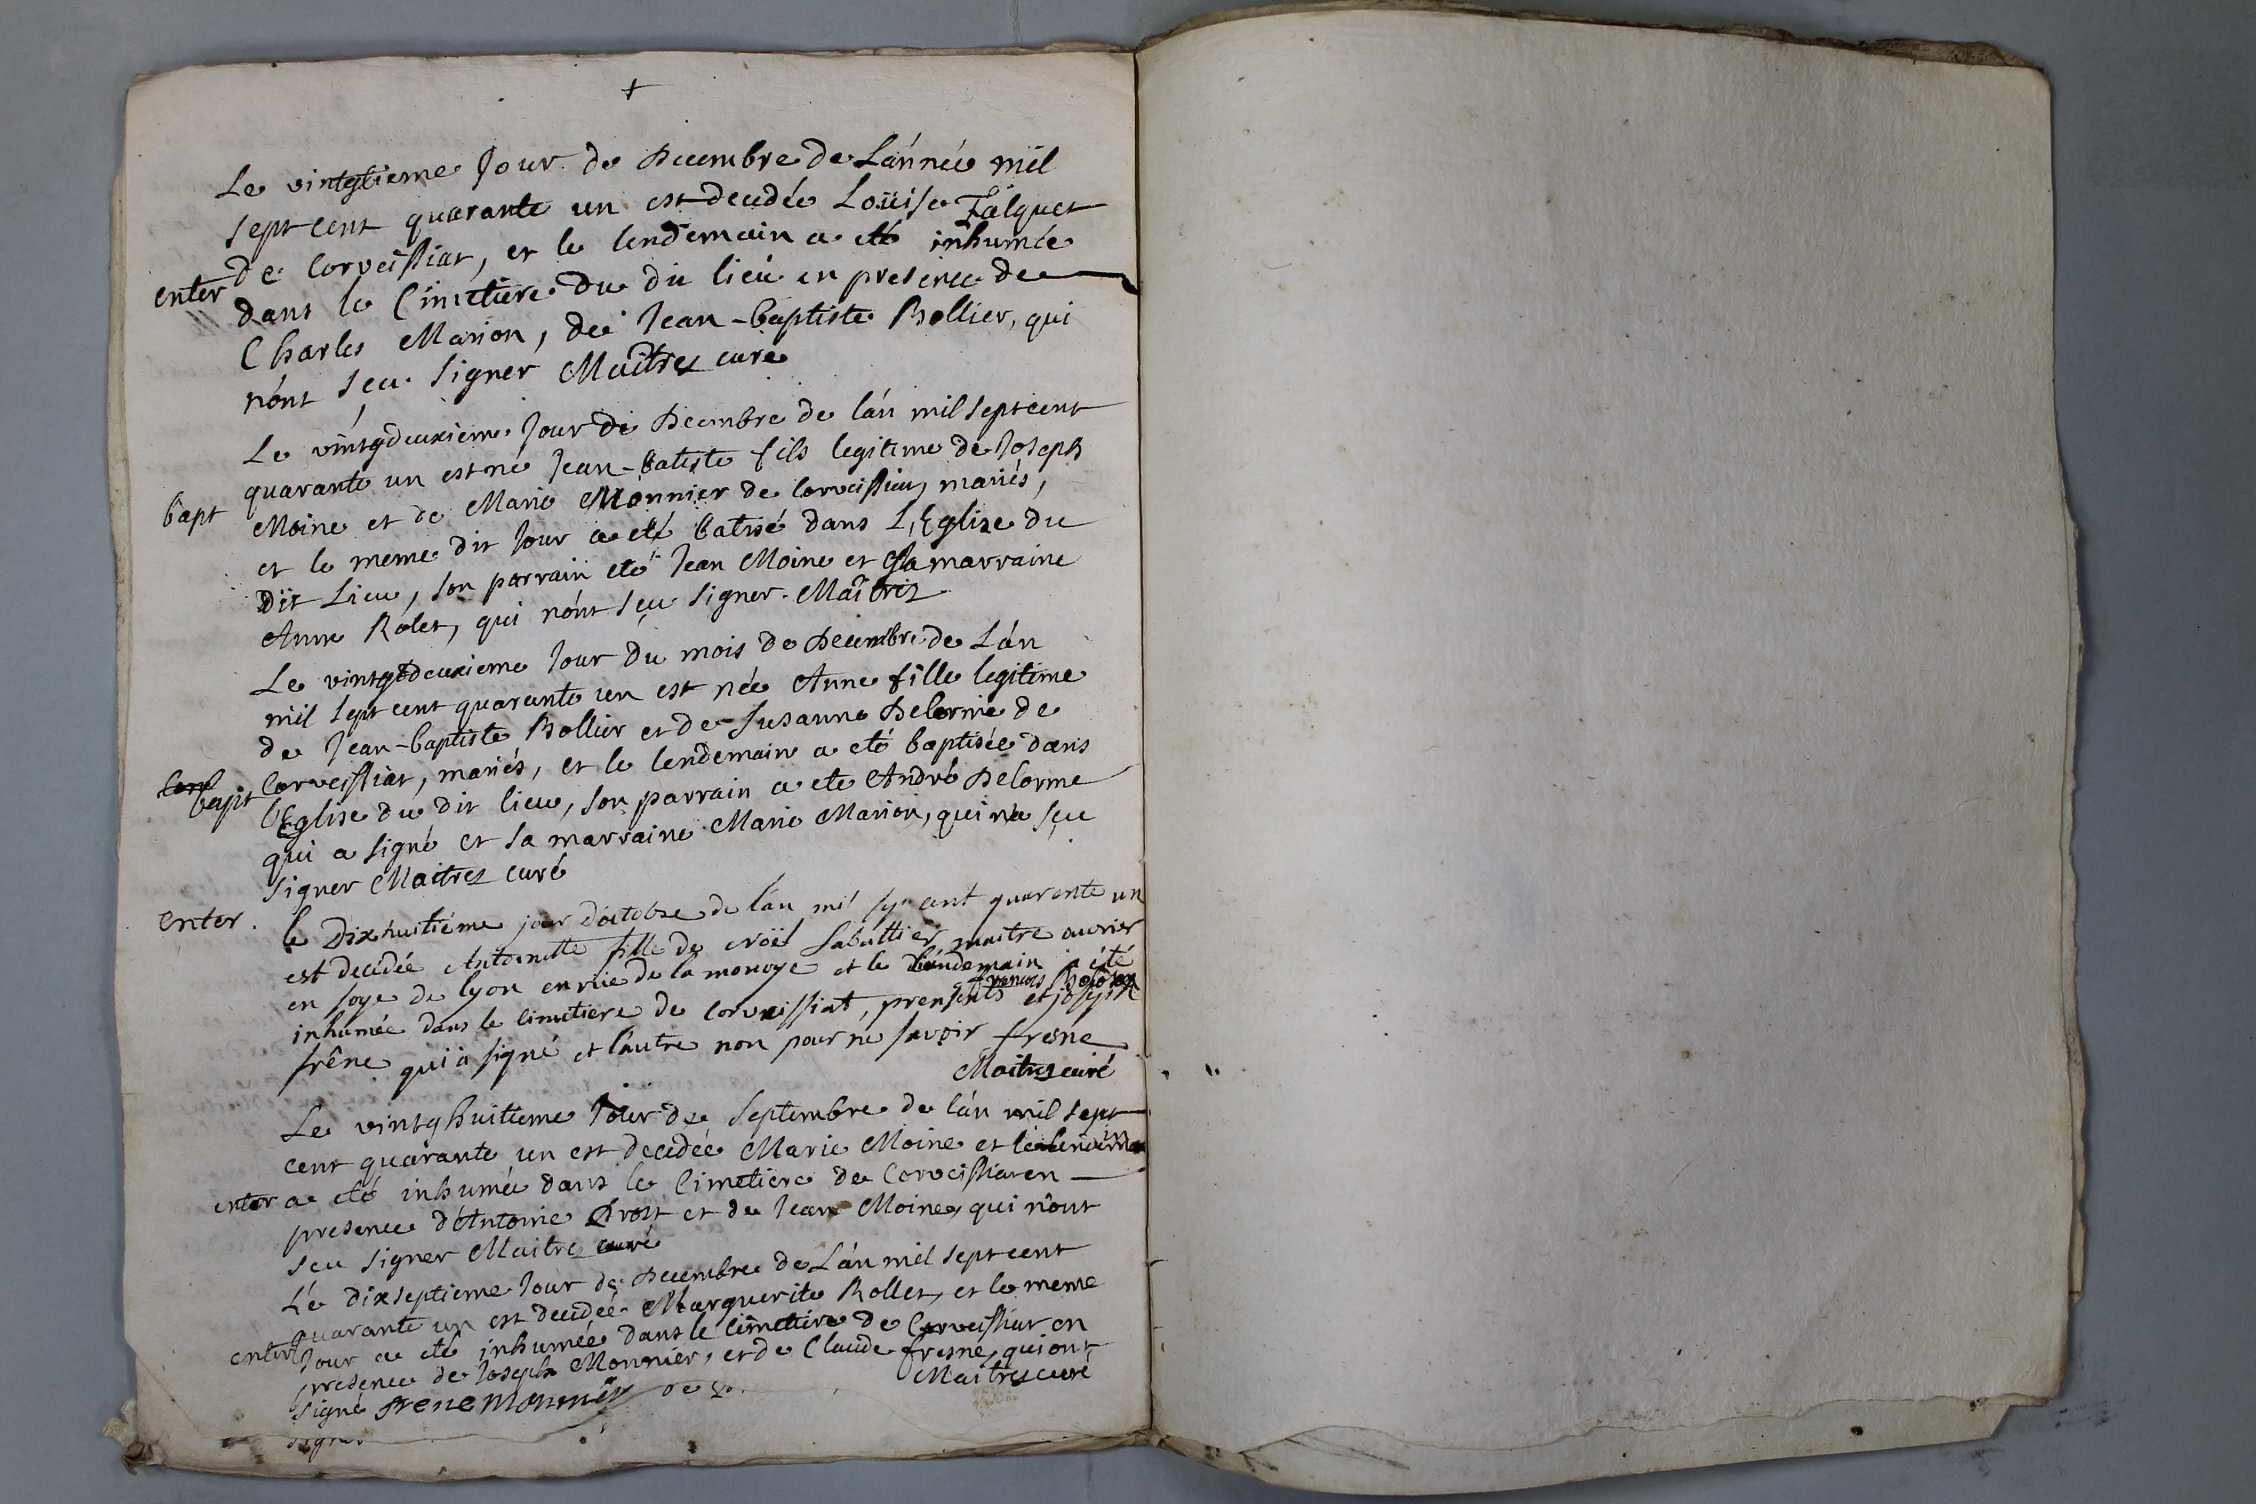 +
Le vintgtieme Jour de Decembre de L'année mil
sept cent quarante un est decedée Loüise Falquet
de Corveissiat, et le lendemain a eté inhumée
enter
dans le Cimetiere du dit lieu en presence de
Charles Marion, de Jean-baptiste Bollier, qui
n'ont sçu signer Maitrez curé
Le vintgdeuxieme Jour de Decembre de l'an mil sept cent
quarante un est né Jean-batiste fils legitime de Joseph
bapt
Moine et de Marie Monnier de Corveissiat, mariés,
et le meme dit Jour a eté batisé dans L'Eglize du
dit Lieu, son parrain eté Jean Moine et sa marraine
Anne Rolet, qui n'ont sçu signer. Maitrez
Le vintgtdeuxieme Jour du mois de Decembre de L'an
mil sept cent quarante un est née Anne fille legitime
de Jean-baptiste Bollier et de Susanne Delorme de
bapt
Corveissiat, mariés, et le lendemain a eté baptisée dans
l'Eglise du dit lieu, son parrain a ete André Delorme
qui a signé et sa marraine Marie Marion, qui n'a sçu
signer Maitrez curé
enter.
le Dixhuitiéme jour d'octobre de l'an mil sept cent quarante un
est decedée Antoinette fille de Nöel Sabattier maitre ouvrier
en soye de lyon en rüe de la monoye et le lendemain a été
inhumée dans le cimetiere de Corveissiat, presents francois et joseph
frêne qui a signé et l'autre non pour ne savoir fresne
Maitrez curé
Le vintghuitieme Jour de Septembre de l'an mil sept
cent quarante un est decedée Marie Moine et le lendemain
enter
a eté inhumée dans le Cimetiere de Corveissiat en
presence d'Antoine Prost et de Jean Moine, qui n'ont
sçu signer Maitrez curé
Le dixseptieme Jour de Decembre de L'an mil sept cent
quarante un est decedée Marguerite Rollet, et le meme
enter
Jour a eté inhumée dans le cimetiere de Corveissiat en
presence de Joseph Monnier, et de Claude fresne, qui ont
signé frene monnier
Maitrez curé